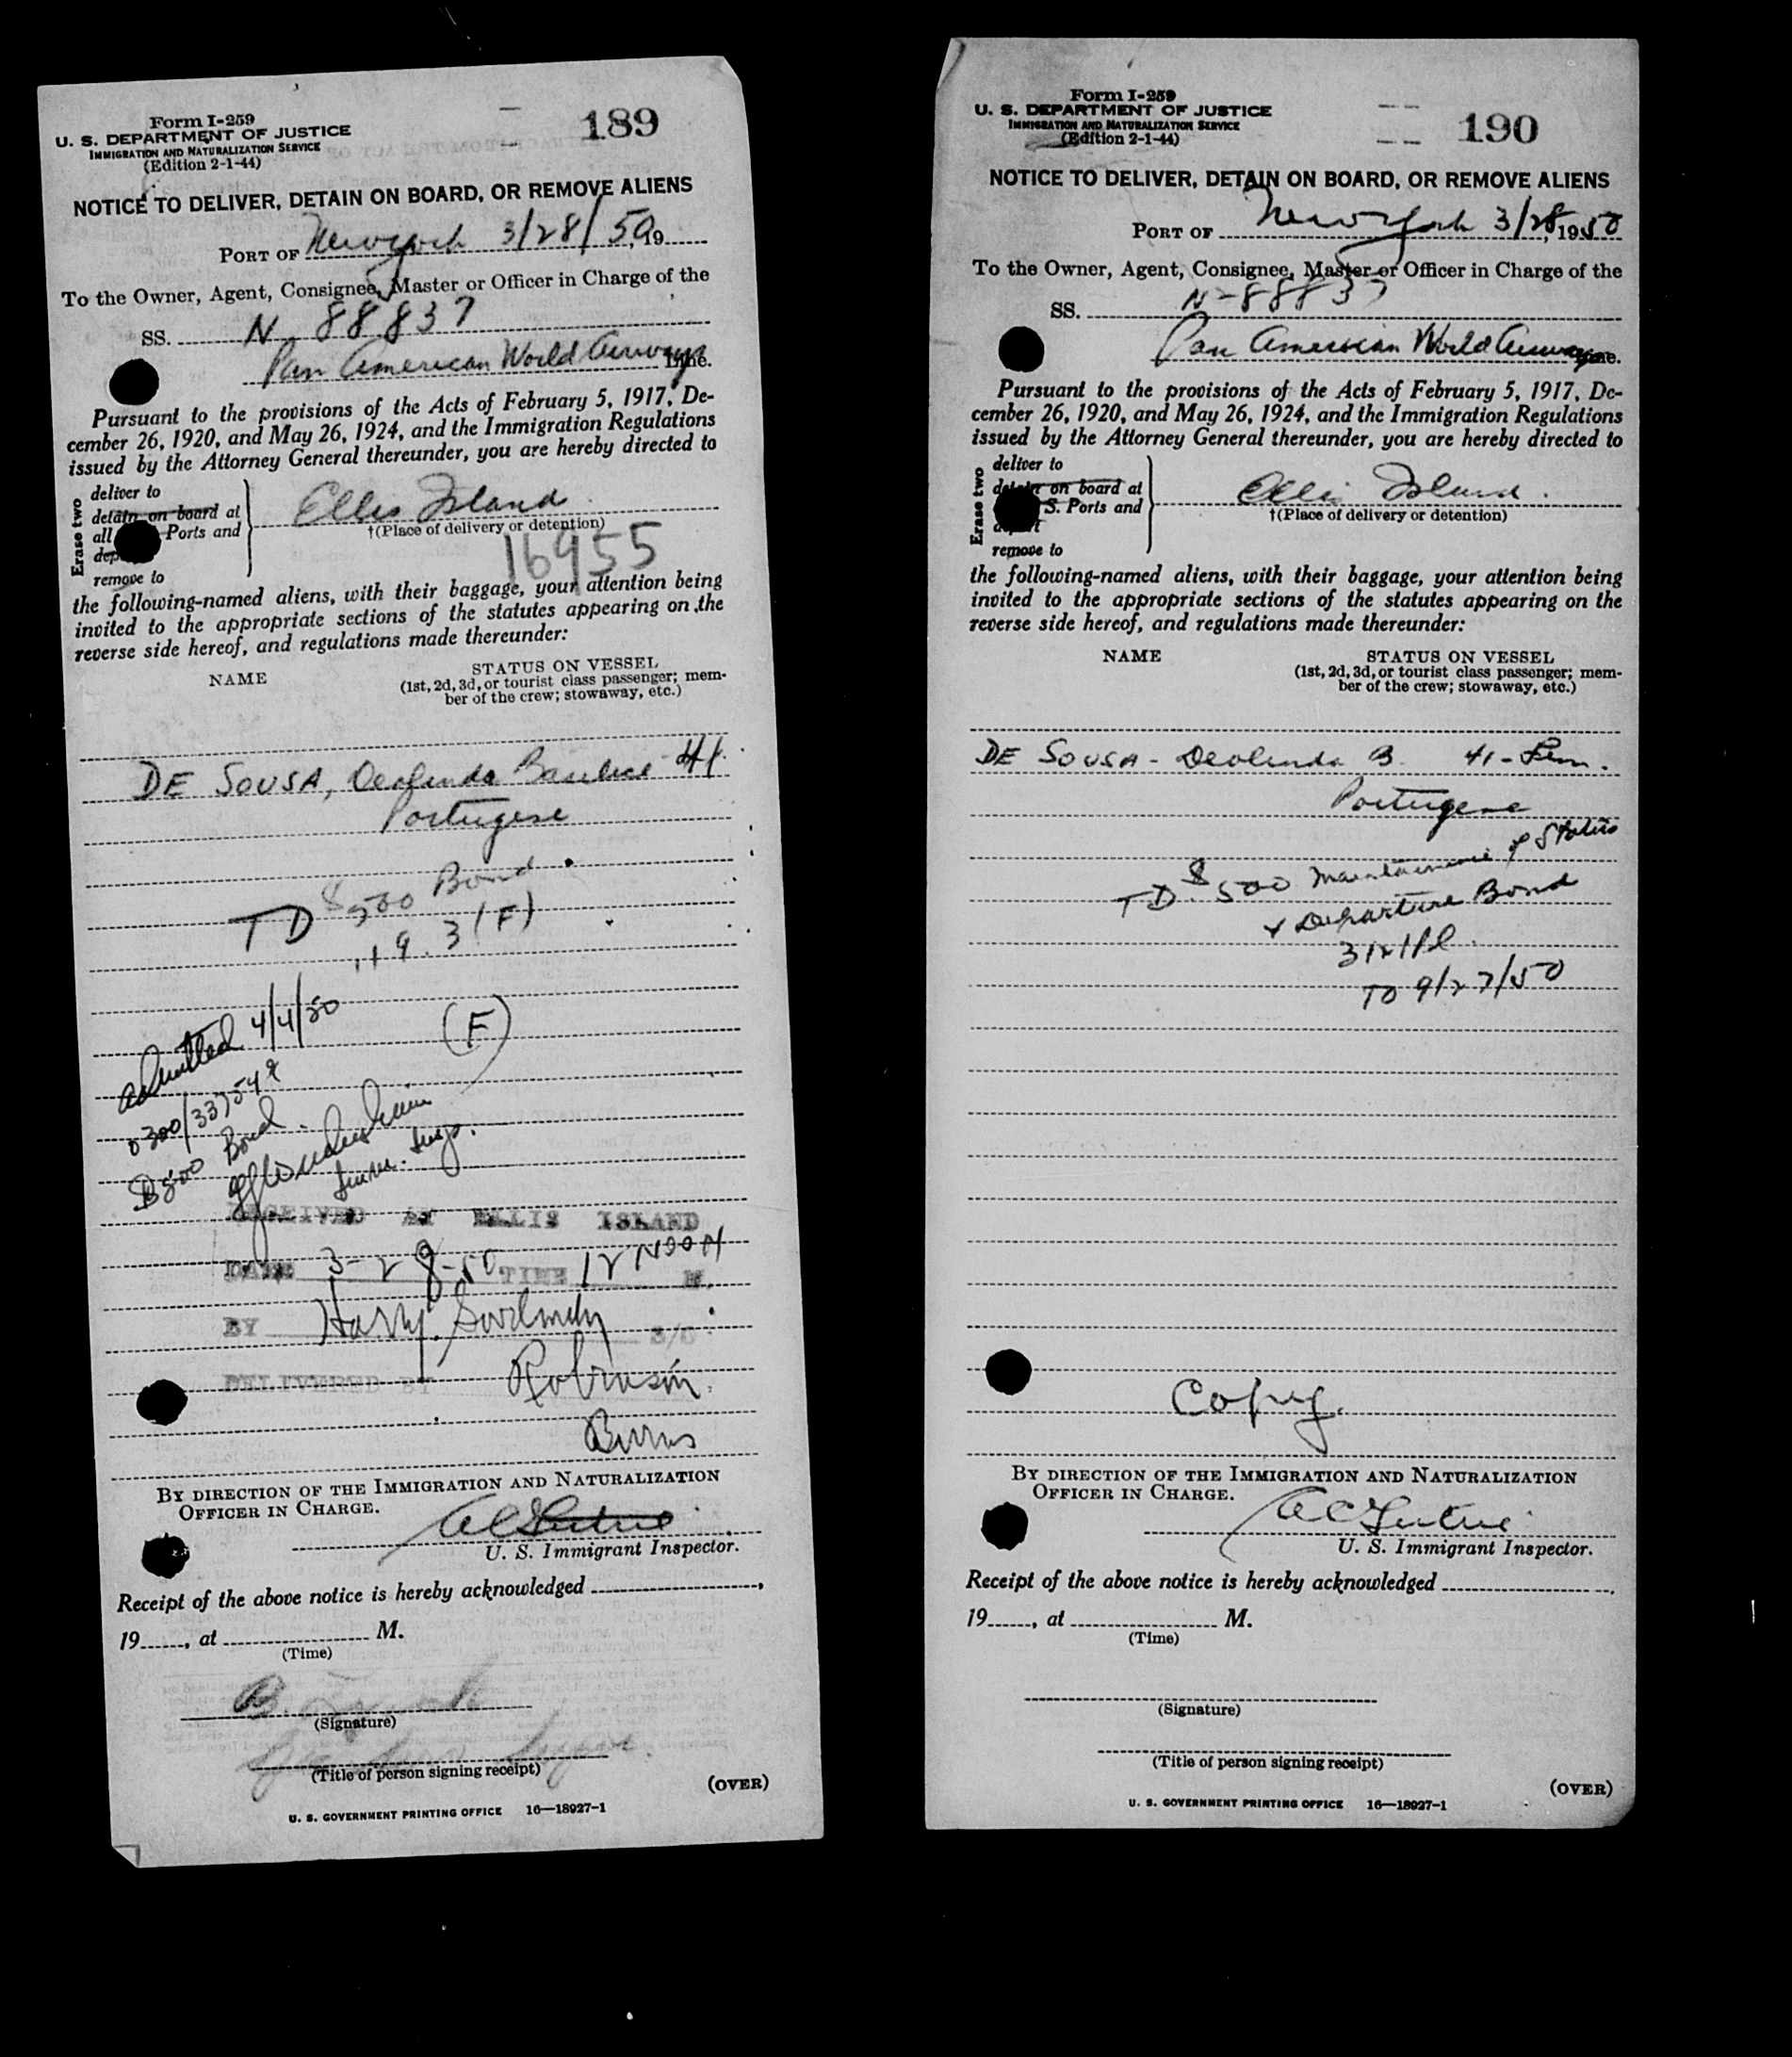 Form I-259
U. S. DEPARTMENT OF JUSTICE
IMMIGRATION AND NATURALIZATION SERVICE
(Edition 2-1-44)
189
NOTICE TO DELIVER, DETAIN ON BOARD, OR REMOVE ALIENS
PORT OF New York 3/28/50, 19
To the Owner, Agent, Consignee, Master or Officer in Charge of the
SS. N 88837
Pan American World Airways Line.
Pursuant to the provisions of the Acts of February 5, 1917, De-
cember 26, 1920, and May 26, 1924, and the Immigration Regulations
issued by the Attorney General thereunder, you are hereby directed to
Erase two
deliver to
detain on board at
all Ports and
remove to
Ellis Island
†(Place of delivery or detention)
16955
the following-named aliens, with their baggage, your attention being
invited to the appropriate sections of the statutes appearing on the
reverse side hereof, and regulations made thereunder:
NAME
STATUS ON VESSEL
(1st, 2d, 3d, or tourist class passenger; mem-
ber of the crew; stowaway, etc.)
DE SOUSA, Deolinda 41
Portugese
TD $500 Bond
19.3 (F)
Admitted 4/4/50
(F)
0300/337549
$500 Bond.
RECEIVED AT ELLIS ISLAND
DATE 3-28-50 TIME 12 NOON M.
BY Harry
DELIVERED BY Robinson
Burns
BY DIRECTION OF THE IMMIGRATION AND NATURALIZATION
OFFICER IN CHARGE.
U. S. Immigrant Inspector.
Receipt of the above notice is hereby acknowledged
19, at M.
(Time)
B.
(Signature)
(Title of person signing receipt)
(OVER)
U. S. GOVERNMENT PRINTING OFFICE 16—18927-1
Form I-259
U. S. DEPARTMENT OF JUSTICE
IMMIGRATION AND NATURALIZATION SERVICE
(Edition 2-1-44)
190
NOTICE TO DELIVER, DETAIN ON BOARD, OR REMOVE ALIENS
PORT OF New York 3/28, 1950
To the Owner, Agent, Consignee, Master or Officer in Charge of the
SS. N-88837
Pan American World Airways
Pursuant to the provisions of the Acts of February 5, 1917, De-
cember 26, 1920, and May 26, 1924, and the Immigration Regulations
issued by the Attorney General thereunder, you are hereby directed to
Erase two
deliver to
detain on board at
S. Ports and
remove to
Ellis Island.
†(Place of delivery or detention)
the following-named aliens, with their baggage, your attention being
invited to the appropriate sections of the statutes appearing on the
reverse side hereof, and regulations made thereunder:
NAME
STATUS ON VESSEL
(1st, 2d, 3d, or tourist class passenger; mem-
ber of the crew; stowaway, etc.)
DE SOUSA - Deolinda B. 41 - Fem.
Portugese
TD. $500 Maintainance of Status
& Departure Bond
TO 9/27/50
Copy.
BY DIRECTION OF THE IMMIGRATION AND NATURALIZATION
OFFICER IN CHARGE.
U. S. Immigrant Inspector.
Receipt of the above notice is hereby acknowledged
19, at M.
(Time)
(Signature)
(Title of person signing receipt)
(OVER)
U. S. GOVERNMENT PRINTING OFFICE 16—18927-1